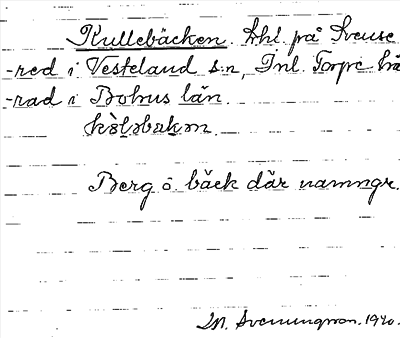 Kullebäcken. Lht. på Svense
-red i Vesteland sn, Inl. Torpe hä
-rad i Bohus län.
kòləbɛkən.
Berg o. bäck där namngr.
M. Svenungsson. 1940.